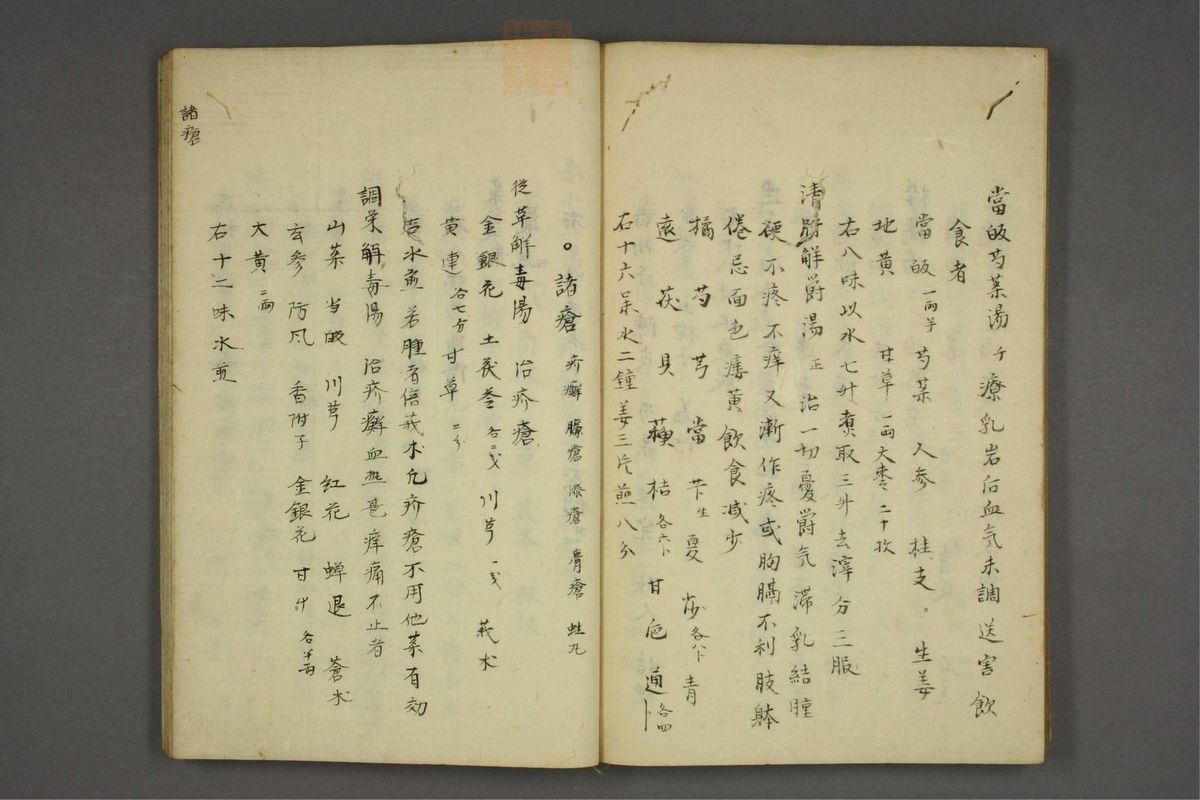 當皈芍薬湯 千 療乳岩后血気未調送害飲
食者
當皈一両半 芍薬 人参 桂支 生姜
地黄 甘草一両 大棗二十枚
右八味以水七升煮取三升去滓分三服
清肝解欝湯 正 治一切憂欝気滞乳結腫
硬不疼不痒又漸作疼或胸膈不利肢躰
倦忌面色痿黄飲食减少
橘 芍 芎 當 芐生 夏 莎各八卜 青
遠 茯 貝 蘓 桔各六卜 甘 巵 通各四卜
右十六味水二鐘姜三片煎八分
諸瘡 疥癬 臁瘡 漆瘡 膏瘡 蛀丸
従革解毒湯 治疥瘡
金銀花 土茯苓各二戔 川芎一戔 莪朮
黄連各七分 甘草二分
右水煎若腫者倍莪朮凡疥瘡不用他薬有効
調栄解毒湯 治疥癬血熱甚痒痛不止者
山薬 当皈 川芎 紅花 蝉退 蒼朮
玄参 防風 香附子 金銀花 甘艸各半両
大黄二両
右十二味水煎
諸瘡